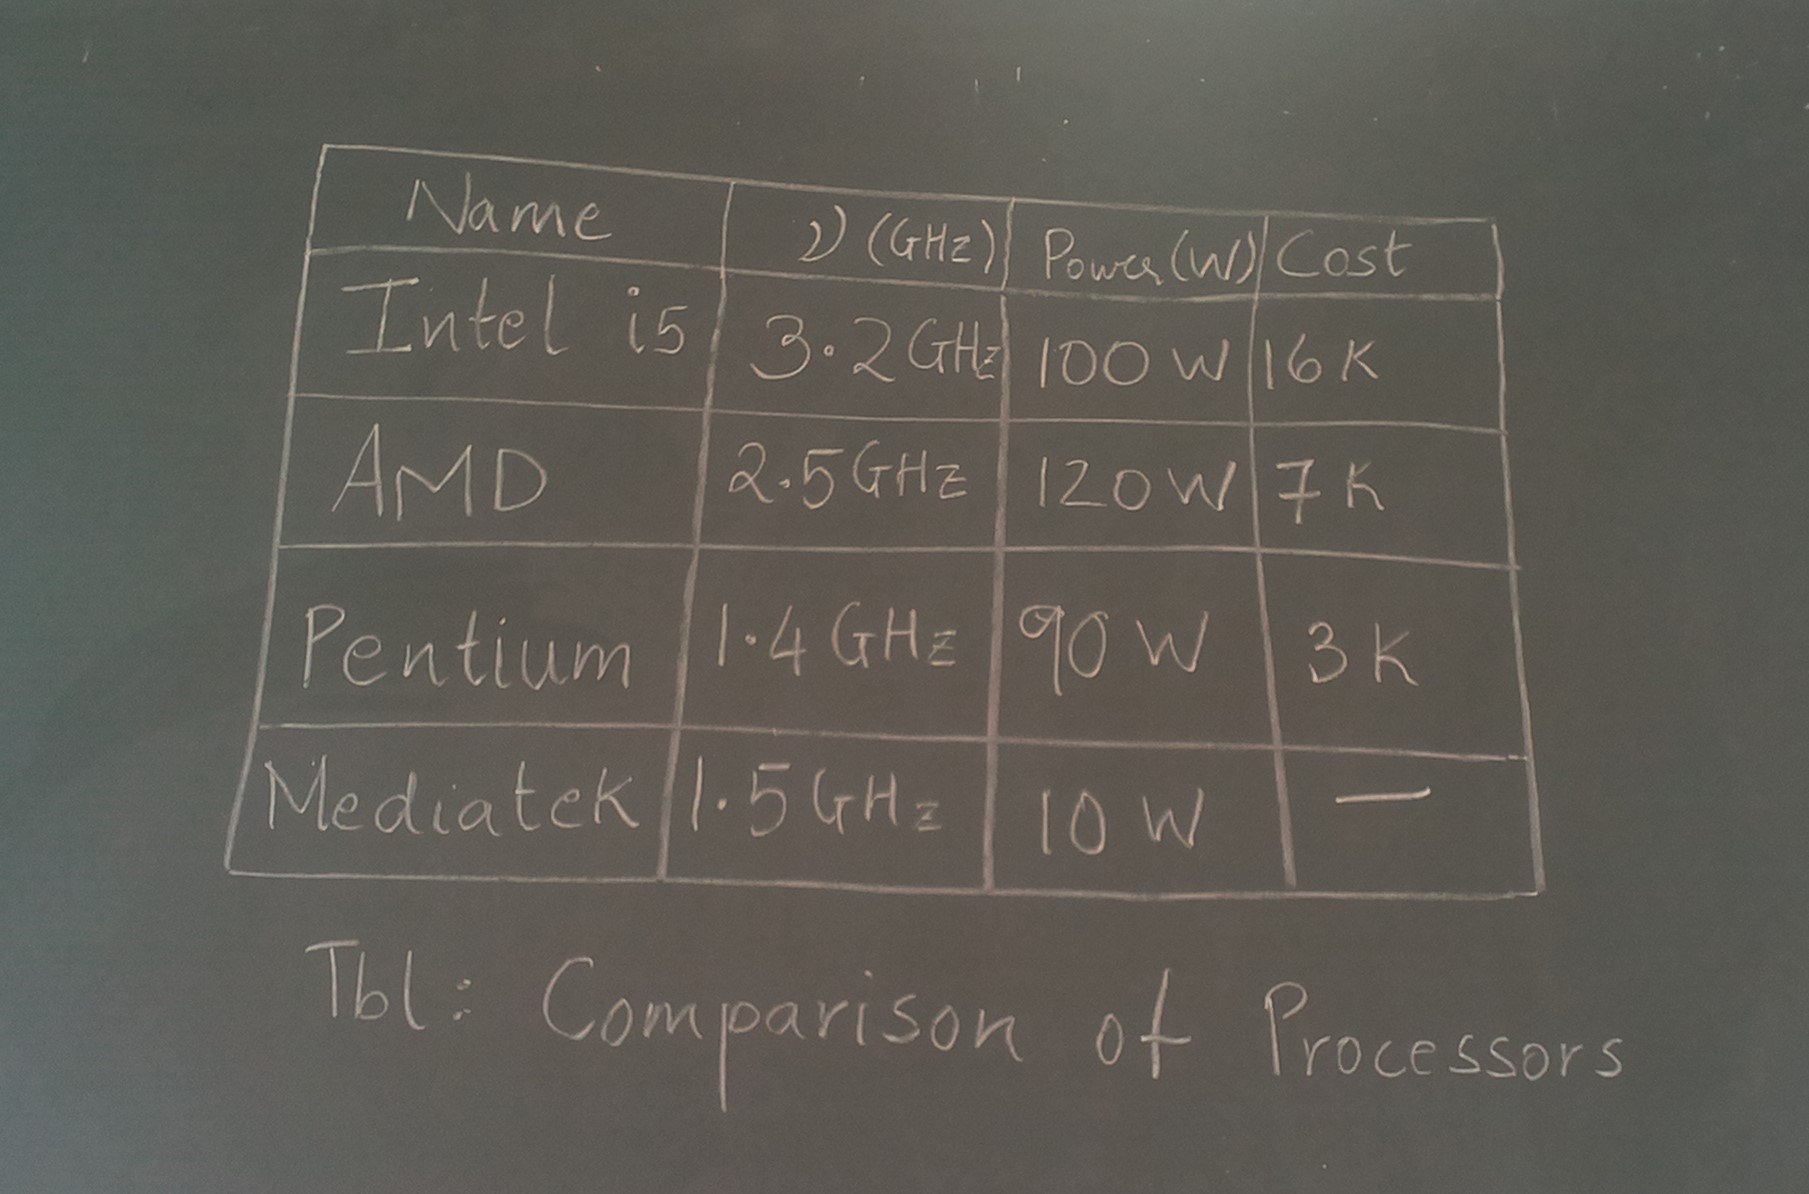 Name ν (GHz) Power (W) Cost
Intel i5 3.2 GHz 100 W 16 K
AMD 2.5 GHz 120 W 7 K
Pentium 1.4 GHz 90 W 3 K
Mediatek 1.5 GHz 10 W —
Tbl: Comparison of Processors